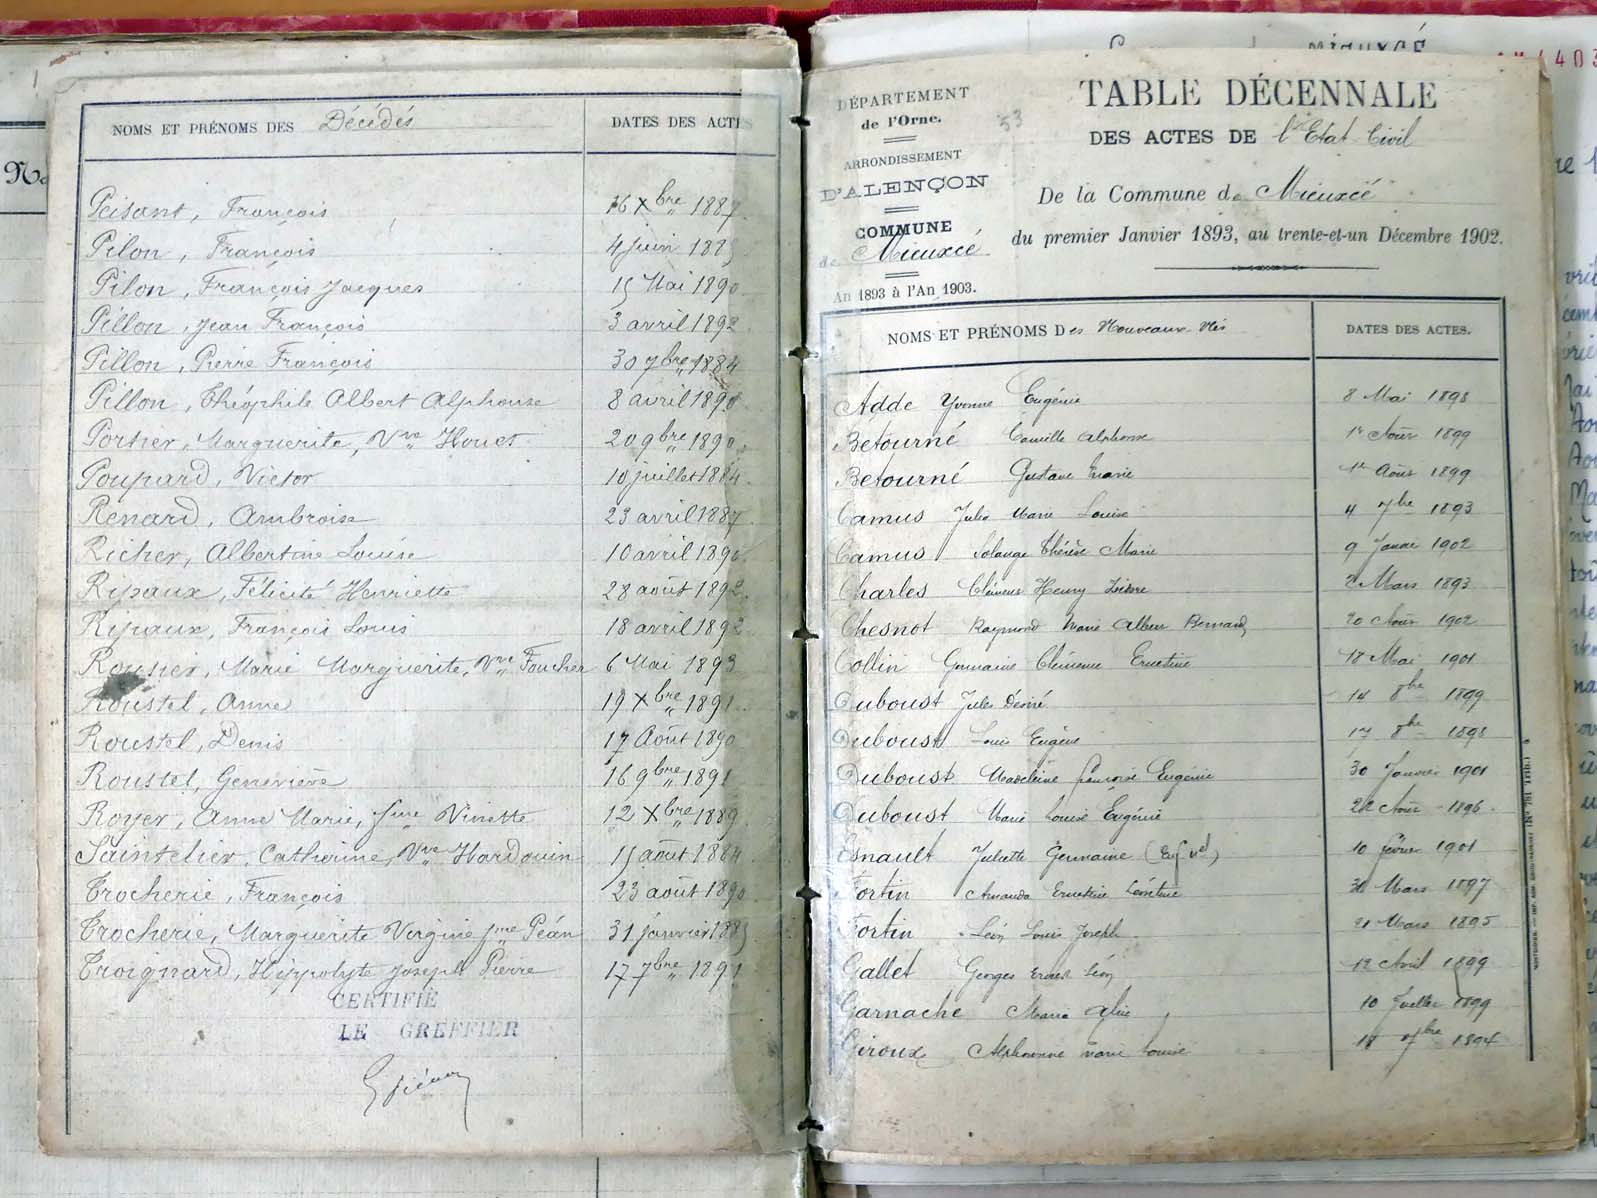 NOMS ET PRÉNOMS DES Décédés DATES DES ACTES
Peisant, François 16 Xbre 1887
Pilon, François 4 juin 188
Pilon, François Jacques 15 Mai 1890
Pillon, Jean François 3 avril 1892
Pillon, Pierre François 30 7bre 1884
Pillon, Théophile Albert Alphonse 8 avril 1890
Portier, Marguerite, Vve Houet 20 9bre 1890
Poupard, Victor 10 juillet 1884
Renard, Ambroise 23 avril 1887
Richer, Albertine Louise 10 avril 1890
Ripaux, Félicité Henriette 28 août 1892
Ripaux, François Louis 18 avril 1892
Marie Marguerite, Vve Foucher 6 Mai 1893
Roustel, Anne 19 Xbre 1891
Roustel, Denis 17 Août 1890
Roustel, Geneviève 16 9bre 1891
Royer, Anne Marie, fme Vinette 12 Xbre 1889
Saintelier, Catherine, Vve Hardouin 15 août 1884
Trocherie, François 23 août 1890
Trocherie, Marguerite Virginie fme Péan 31 janvier 1885
Troignard, Hippolyte Joseph Pierre 17 7bre 1891
CERTIFIÉ
LE GREFFIER
DÉPARTEMENT
de l'Orne.
ARRONDISSEMENT
D'ALENÇON
COMMUNE
de Mieuxcé
An 1893 à l'An 1903.
53
TABLE DÉCENNALE
DES ACTES DE l'Etat Civil
De la Commune de Mieuxcé
du premier Janvier 1893, au trente-et-un Décembre 1902.
NOMS ET PRÉNOMS Des Nouveaux-Nés DATES DES ACTES.
Adde Yvonne Eugénie 8 Mai 1898
Betourné Camille Alphonse 1er Août 1899
Betourné Gustave Marie 1er Août 1899
Camus Julia Marie Louise 4 7bre 1893
Camus Solange Thérèse Marie 9 Janvier 1902
Charles Clément Henry Isidore 2 Mars 1893
Chesnot Raymond Marie Albert Bernard 20 Août 1902
Collin Germaine Clémence Ernestine 18 Mai 1901
Duboust Jules Désiré 14 8bre 1899
Duboust Louis Eugène 17 8bre 1898
Duboust Madeleine Françoise Eugénie 30 Janvier 1901
Duboust Marie Louise Eugénie 22 Août 1896
Esnault Juliette Germaine (Enf nel) 10 février 1901
Fortin Amanda Ernestine Léontine 31 Mars 1897
Fortin Léon Louis Joseph 21 Mars 1895
Gallet Georges Ernest Léon 12 Avril 1899
Garnache Maria Alice 10 Juillet 1899
Giroux Alphonsine Marie Louise 18 7bre 1894